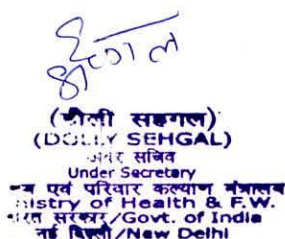 (डौली सहगल)
(DOLLY SEHGAL)
अवर सचिव
Under Secretary
एवं परिवार कल्याण मंत्रालय
istry of Health & F.W.
सरकार/Govt. of India
नई दिल्ली/New Delhi